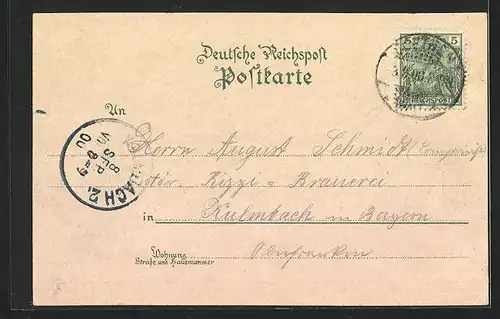 Deutsche Reichspost
Postkarte
5
REICHSPOST
An
Herrn August Schmidt
Rizzi-Brauerei
in Kulmbach in Bayern
Oberfranken
Wohnung
Straße und Hausnummer
8 SEP.
8-9
00
BACH 2.